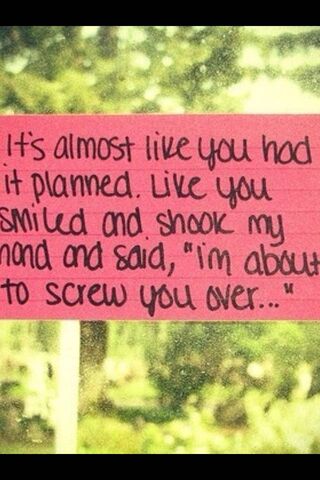 It's almost like you had
it planned. Like you
smiled and shook my
hand and said, "i'm about
to screw you over..."